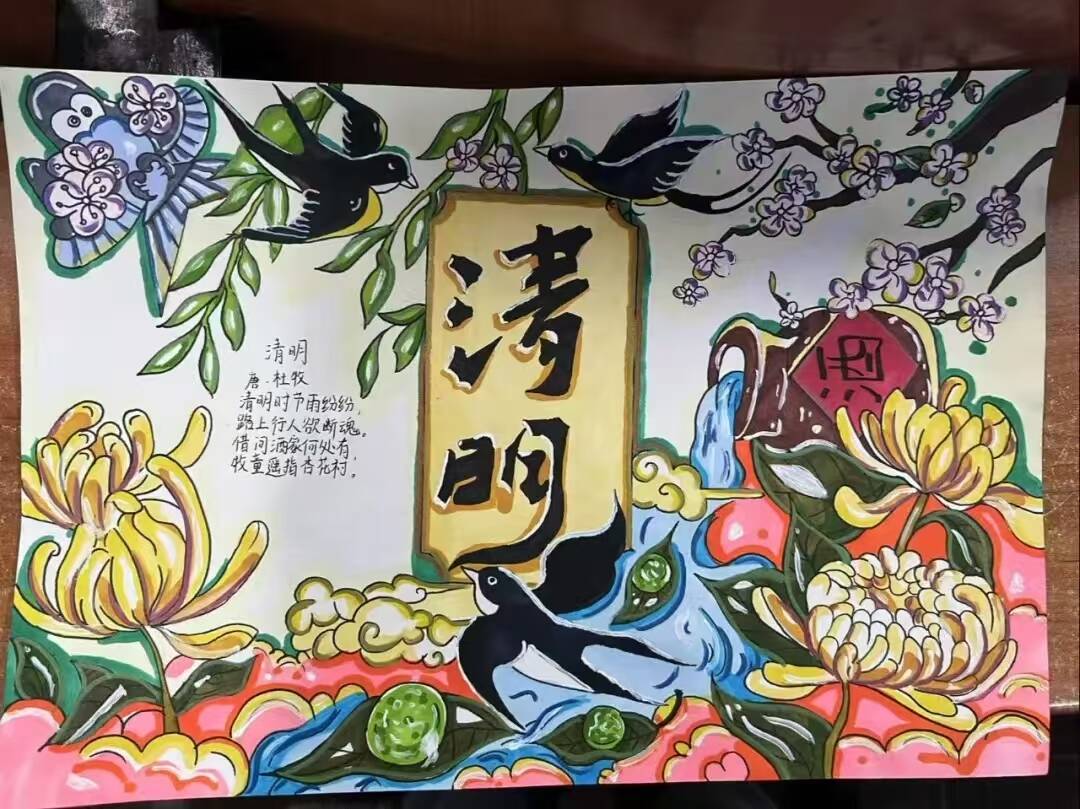 清明
清明
唐·杜牧
清明时节雨纷纷，
路上行人欲断魂。
借问酒家何处有，
牧童遥指杏花村。